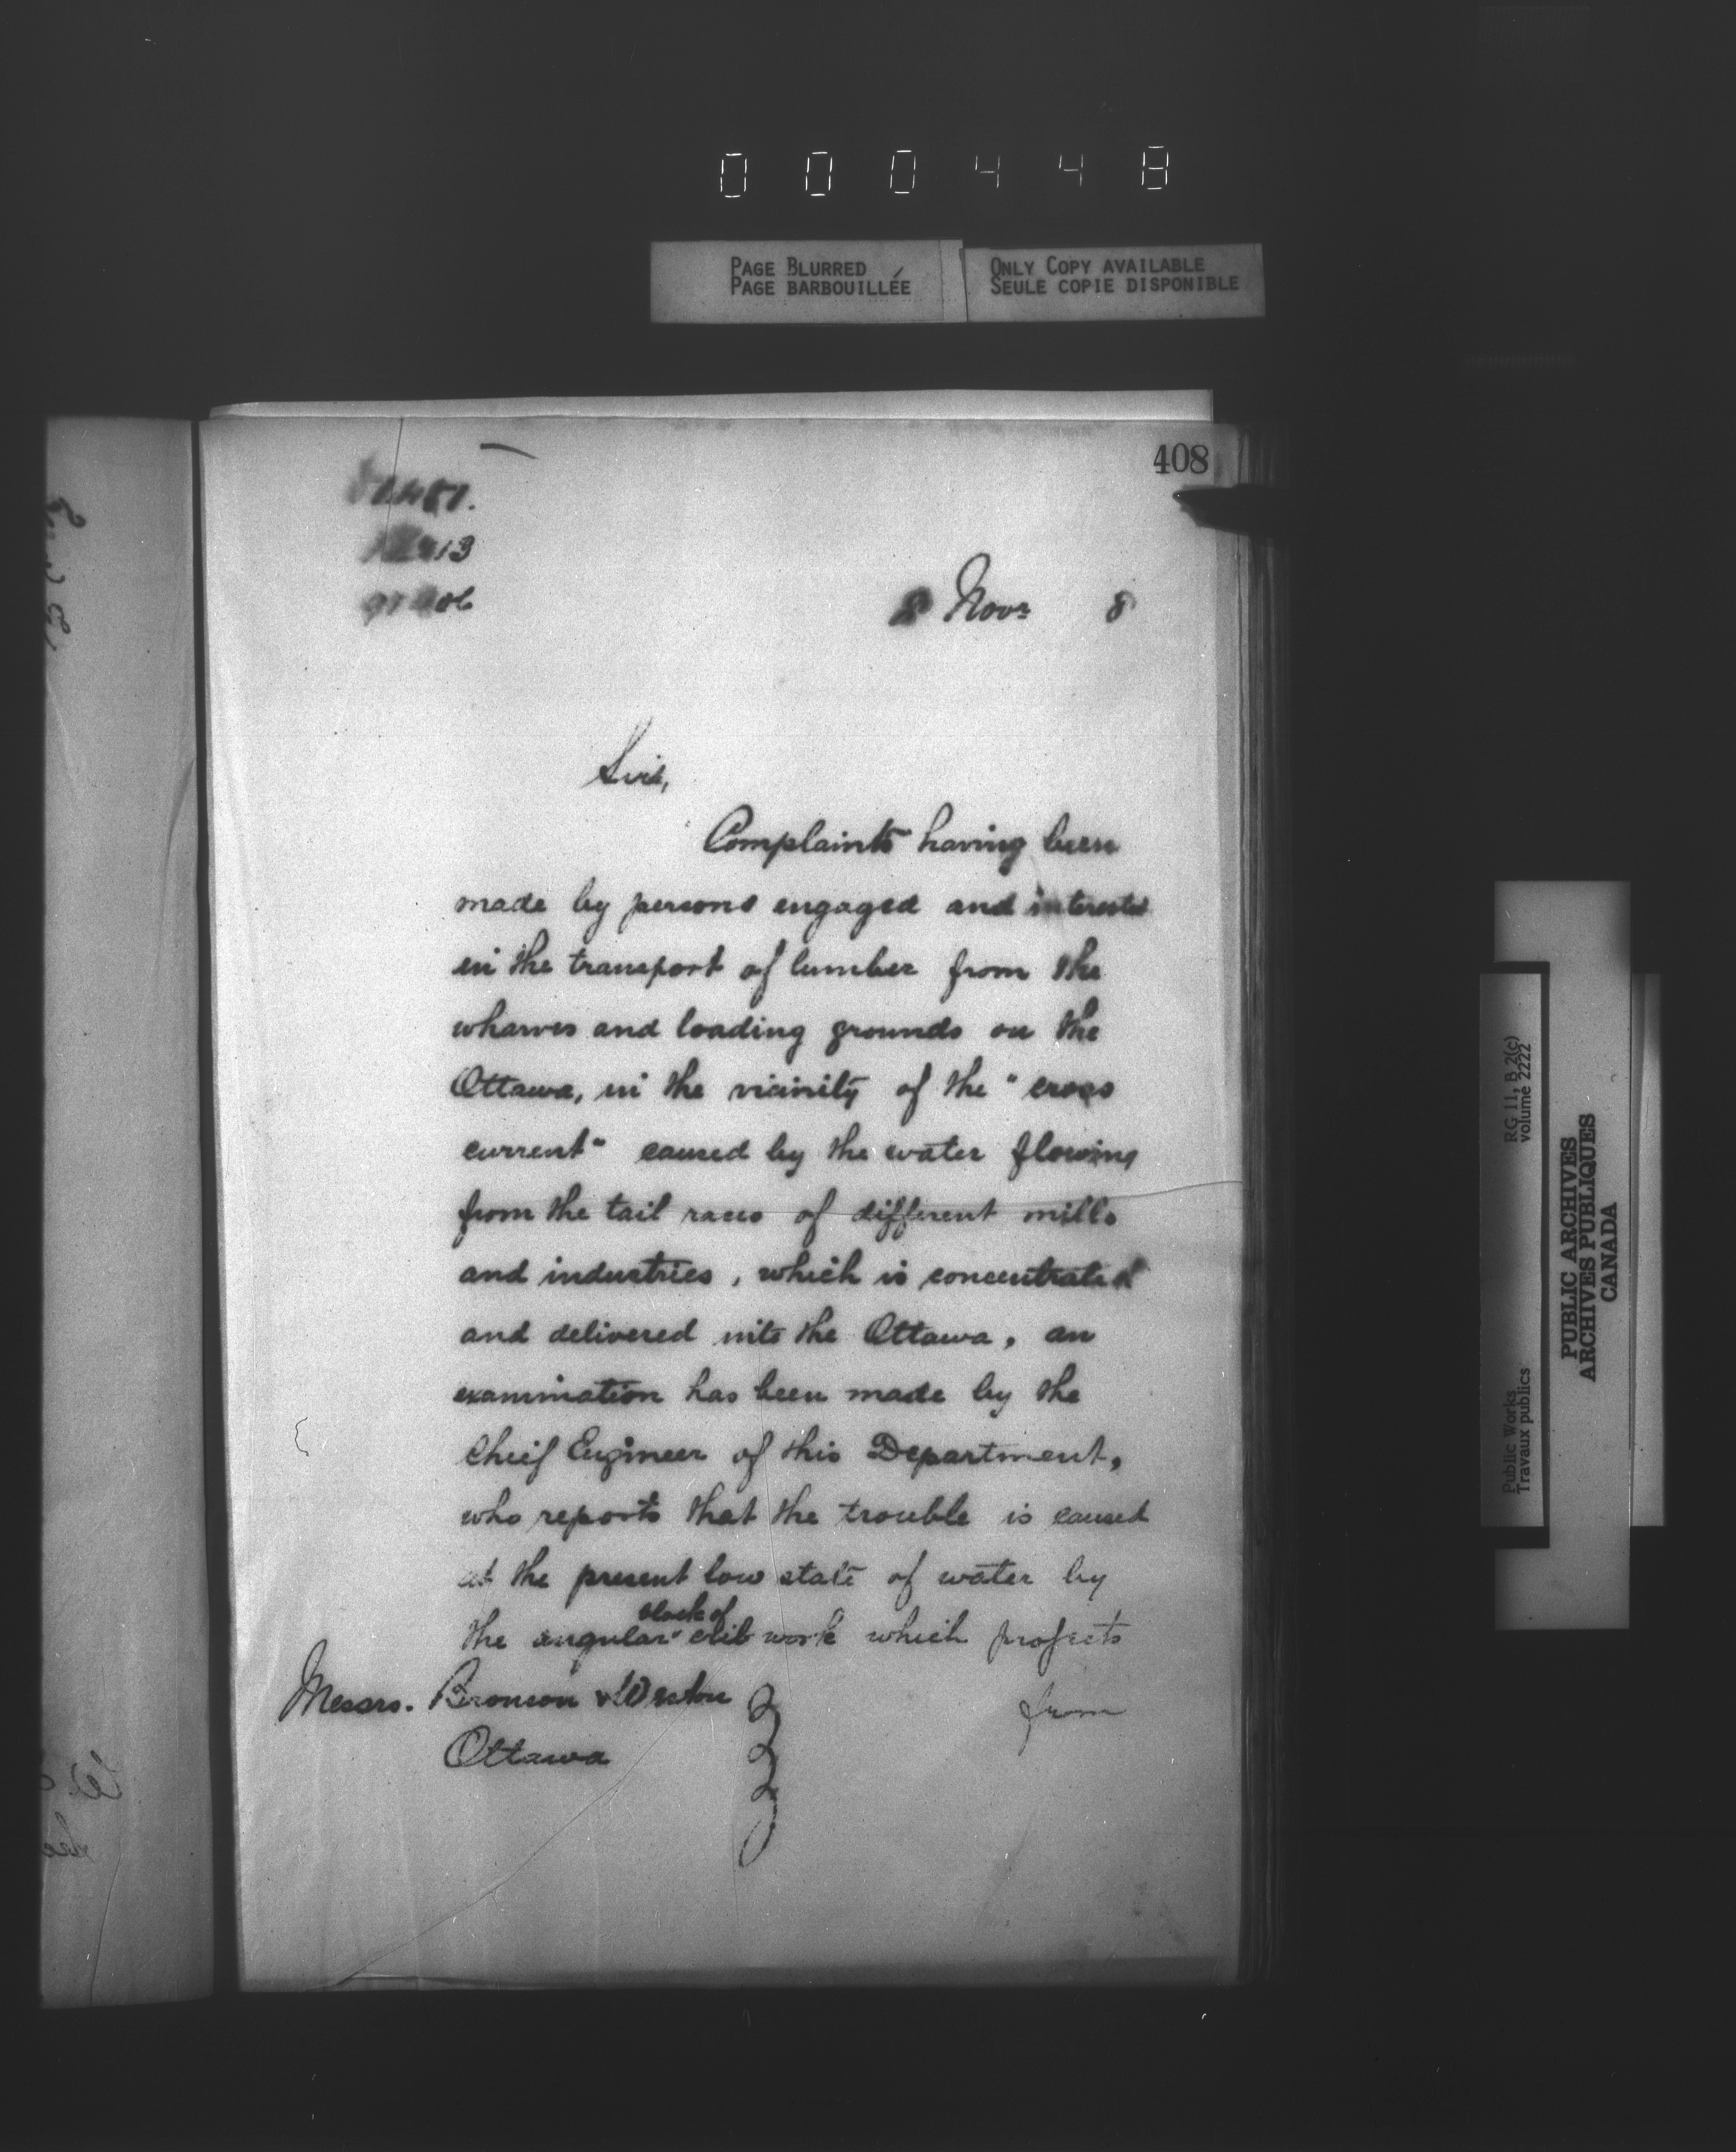 000448
PAGE BLURRED
PAGE BARBOUILLÉE
ONLY COPY AVAILABLE
SEULE COPIE DISPONIBLE
408
8 Novr 8
Sirs,
Complaints having been
made by persons engaged and interested
in the transport of lumber from the
wharves and loading grounds on the
Ottawa, in the vicinity of the "cross
current" caused by the water flowing
from the tail races of different mills
and industries, which is concentrated
and delivered into the Ottawa, an
examination has been made by the
Chief Engineer of this Department,
who reports that the trouble is caused
at the present low state of water by
block of
the angular crib work which projects
from
Messrs. Bronson & Weston
Ottawa
Public Works
Travaux publics
RG 11, B 2(c)
volume 2222
PUBLIC ARCHIVES
ARCHIVES PUBLIQUES
CANADA